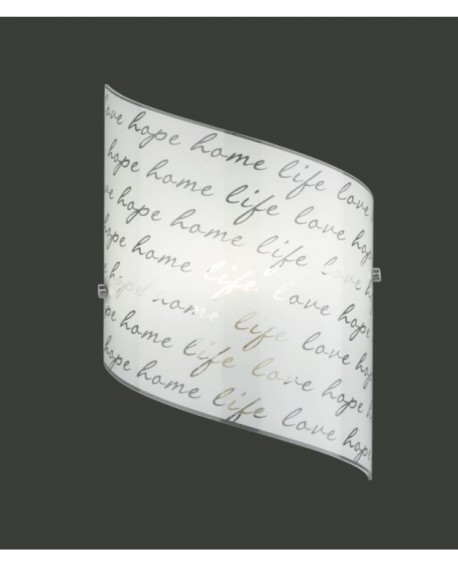 love hope home life love
hope home life love hope
love hope home life love
hope home life love hope
love hope home life love hope
hope home life love hope
hope home life love hope